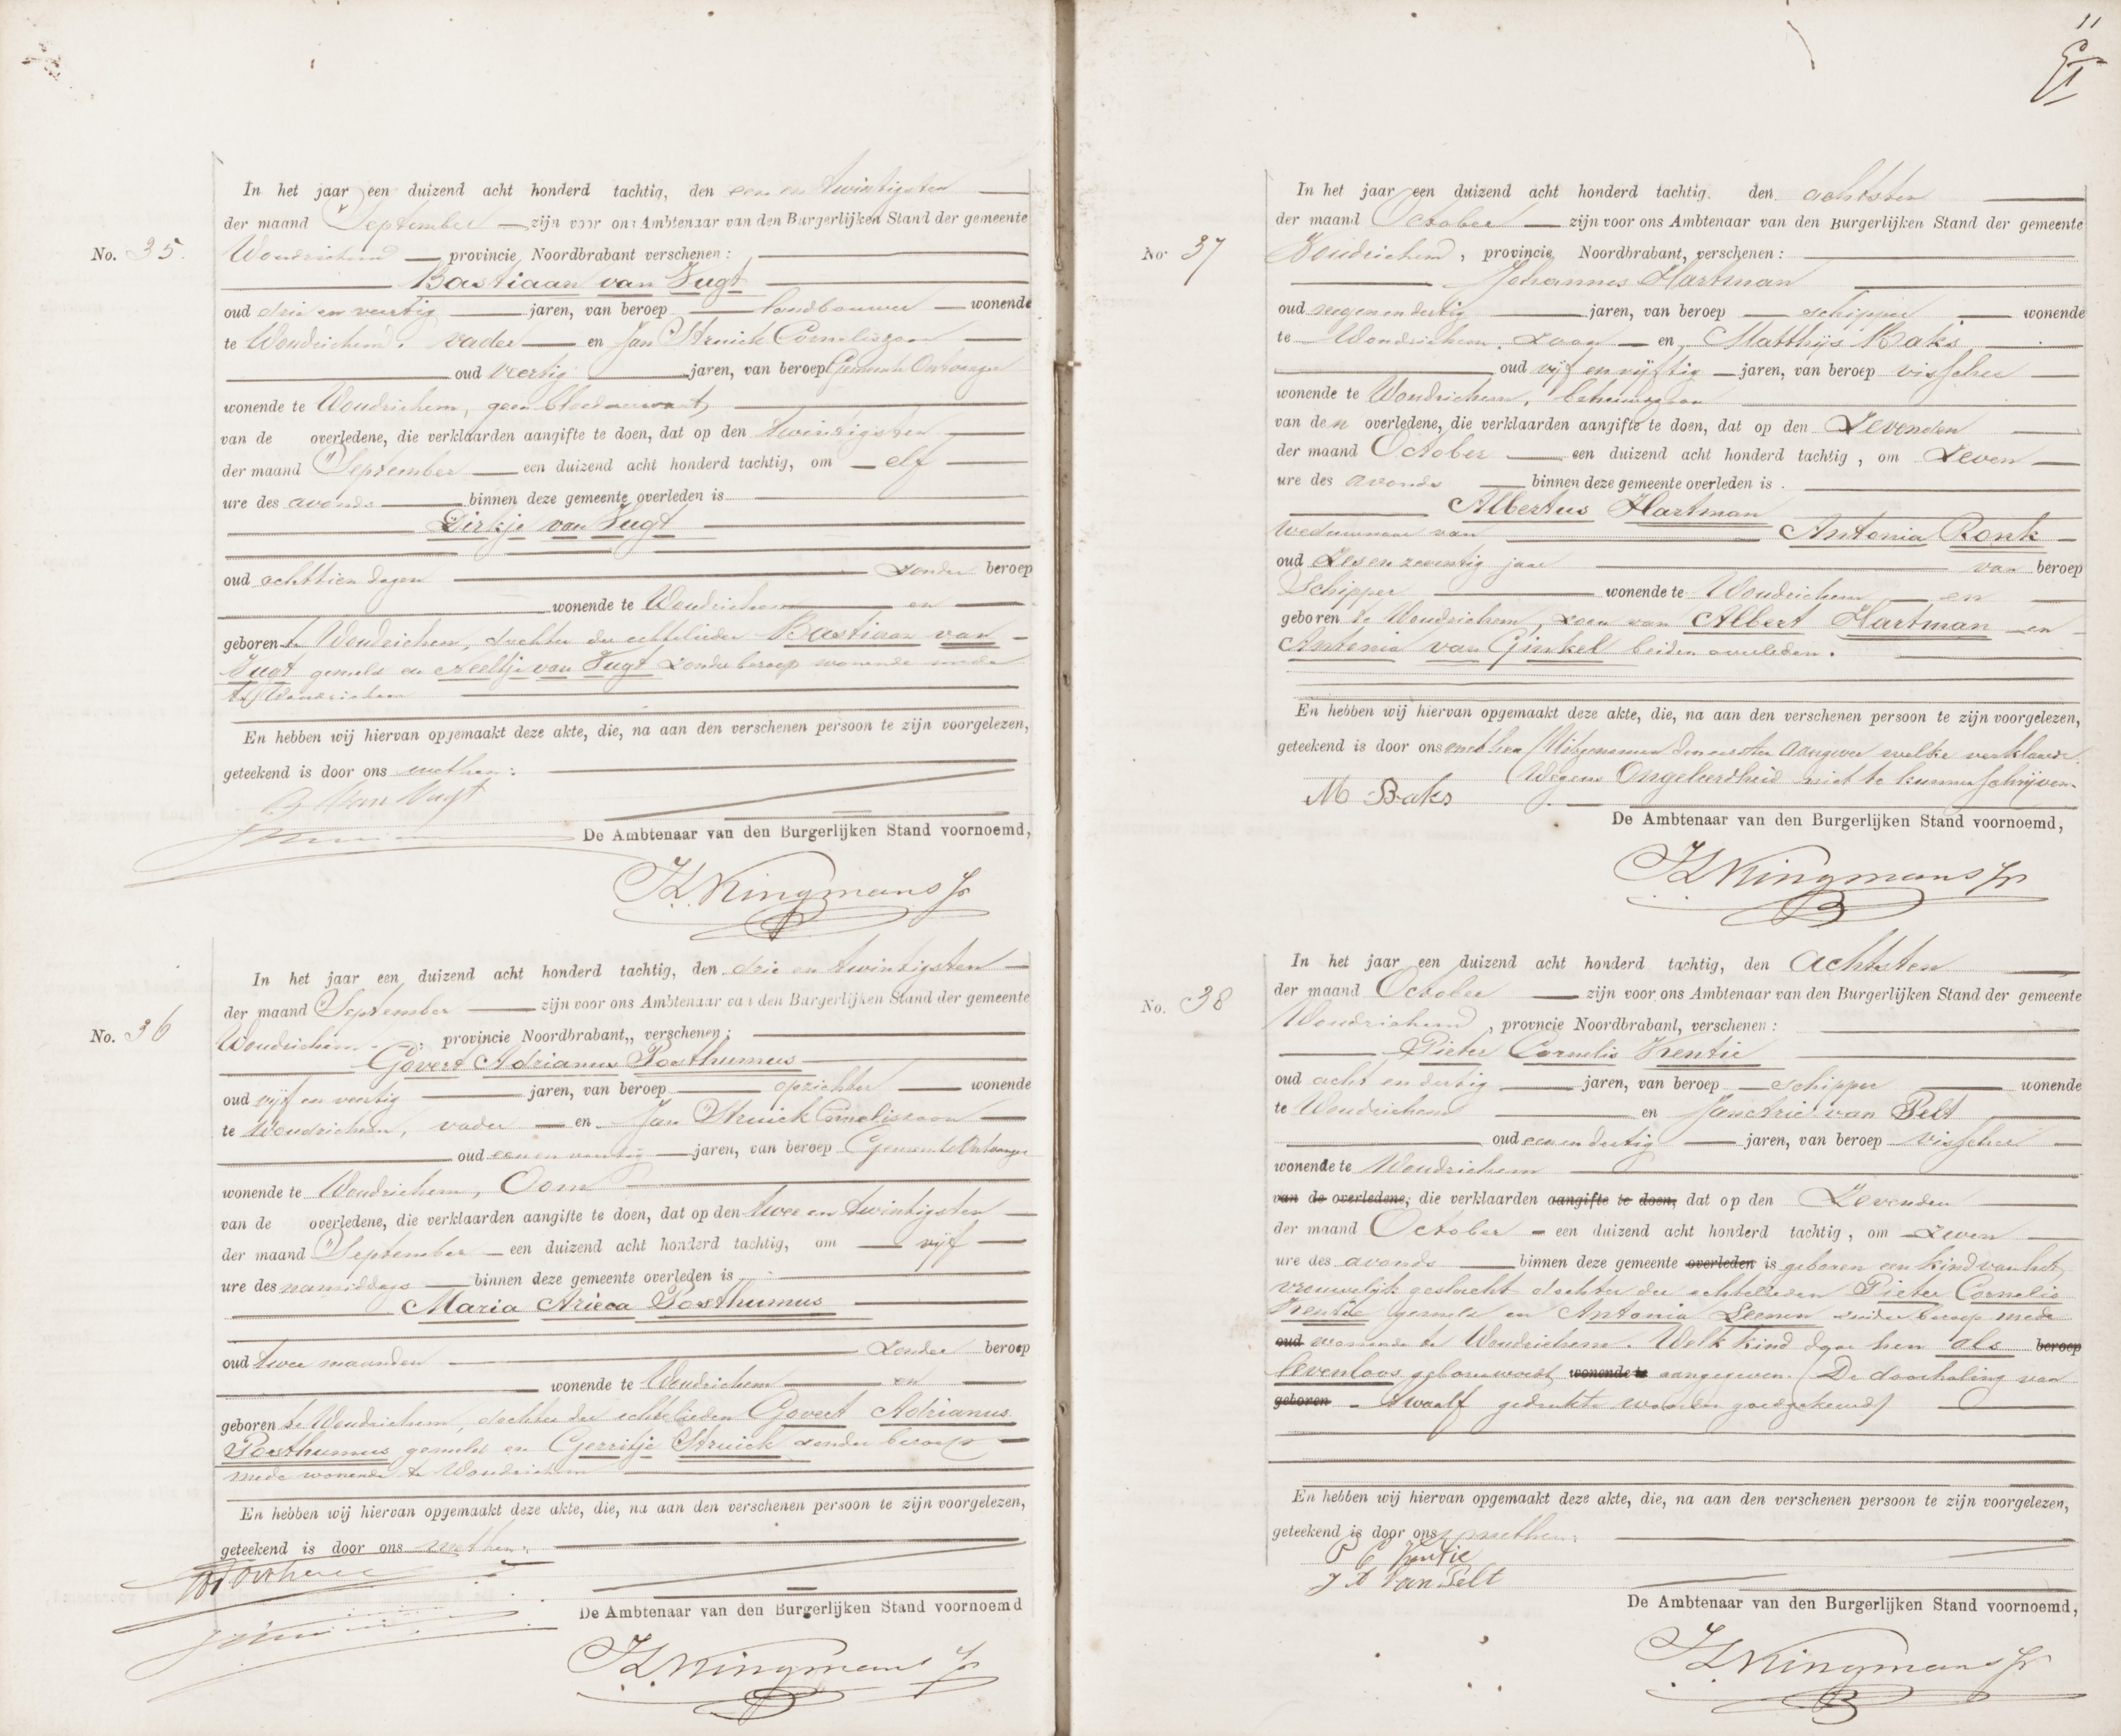 In het jaar een duizend acht honderd tachtig, den een en twintigsten
der maand September zijn voor ons Ambtenaar van den Burgerlijken Stand der gemeente
No. 35. Woudrichem provincie Noordbrabant verschenen:
Bastiaan van Vugt
oud drie en veertig jaren, van beroep landbouwer wonende
te Woudrichem, vader en Jan Struick Corneliszoon
oud veertig jaren, van beroep Gemeente Ontvanger
wonende te Woudrichem, geen bloedverwant
van de overledene, die verklaarden aangifte te doen, dat op den twintigsten
der maand September een duizend acht honderd tachtig, om elf
ure des avonds binnen deze gemeente overleden is
Dirkje van Vugt
oud achttien dagen zonder beroep
wonende te Woudrichem en
geboren te Woudrichem, dochter der echtelieden Bastiaan van
Vugt gemeld en Neeltje van Vugt zonder beroep wonende mede
te Woudrichem
En hebben wij hiervan opgemaakt deze akte, die, na aan den verschenen persoon te zijn voorgelezen,
geteekend is door ons met hen:
van Vugt
De Ambtenaar van den Burgerlijken Stand voornoemd,
Kingmans Jr
In het jaar een duizend acht honderd tachtig, den drie en twintigsten
der maand September zijn voor ons Ambtenaar van den Burgerlijken Stand der gemeente
No. 36 Woudrichem provincie Noordbrabant,, verschenen;
Govert Adrianus Posthumus
oud vijf en veertig jaren, van beroep opzichter wonende
te Woudrichem, vader en Jan Struick Corneliszoon
oud een en veertig jaren, van beroep Gemeente Ontvanger
wonende te Woudrichem, Oom
van de overledene, die verklaarden aangifte te doen, dat op den twee en twintigsten
der maand September een duizend acht honderd tachtig, om vijf
ure des namiddags binnen deze gemeente overleden is
Maria Arieca Posthumus
oud twee maanden zonder beroep
wonende te Woudrichem en
geboren te Woudrichem, dochter der echtelieden Govert Adrianus
Posthumus gemeld en Gerritje Struick zonder beroep
mede wonende te Woudrichem
En hebben wij hiervan opgemaakt deze akte, die, na aan den verschenen persoon te zijn voorgelezen,
geteekend is door ons met hen:
De Ambtenaar van den Burgerlijken Stand voornoemd
Kingmans Jr
11
In het jaar een duizend acht honderd tachtig. den achtsten
der maand October zijn voor ons Ambtenaar van den Burgerlijken Stand der gemeente
No. 37 Woudrichem, provincie Noordbrabant, verschenen:
Johannes Hartman
oud negen en dertig jaren, van beroep schipper wonende
te Woudrichem, zoon en Matthijs Baks
oud vijf en vijftig jaren, van beroep visscher
wonende te Woudrichem, behuwdzoon
van den overledene, die verklaarden aangifte te doen, dat op den Zevenden
der maand October een duizend acht honderd tachtig, om Zeven
ure des avonds binnen deze gemeente overleden is.
Albertus Hartman
weduwnaar van Antonia Ronk
oud Zes en zeventig jaar van beroep
Schipper wonende te Woudrichem en
geboren te Woudrichem, zoon van Albert Hartman en
Antonia van Ginkel beiden overleden.
En hebben wij hiervan opgemaakt deze akte, die, na aan den verschenen persoon te zijn voorgelezen,
geteekend is door ons met hen (Uitgenomen den eersten Aangever welke verklaarde
Wegens Ongeleerdheid niet te kunnen schrijven.
M Baks
De Ambtenaar van den Burgerlijken Stand voornoemd,
Kingmans Jr
In het jaar een duizend acht honderd tachtig, den Achtsten
der maand October zijn voor ons Ambtenaar van den Burgerlijken Stand der gemeente
No. 38 Woudrichem, provncie Noordbrabanl, verschenen:
Pieter Cornelis Kentie
oud acht en dertig jaren, van beroep schipper wonende
te Woudrichem en Jan Arie van Pelt
oud een en dertig jaren, van beroep visscher
wonende te Woudrichem
van de overledene, die verklaarden aangifte te doen, dat op den Zevenden
der maand October een duizend acht honderd tachtig, om Zeven
ure des avonds binnen deze gemeente overleden is geboren een kind van het
vrouwelijk geslacht dochter der echtelieden Pieter Cornelis
Kentie gemeld en Antonia Leenen zonder beroep mede
oud wonende te Woudrichem. Welk kind door hen als beroep
levenloos geboren wordt wonende te aangegeven. (De doorhaling van
geboren twaalf gedrukte woorden goedgekeurd)
En hebben wij hiervan opgemaakt deze akte, die, na aan den verschenen persoon te zijn voorgelezen,
geteekend is door ons met hen:
P C Kentie
J A van Pelt
De Ambtenaar van den Burgerlijken Stand voornoemd,
Kingmans Jr